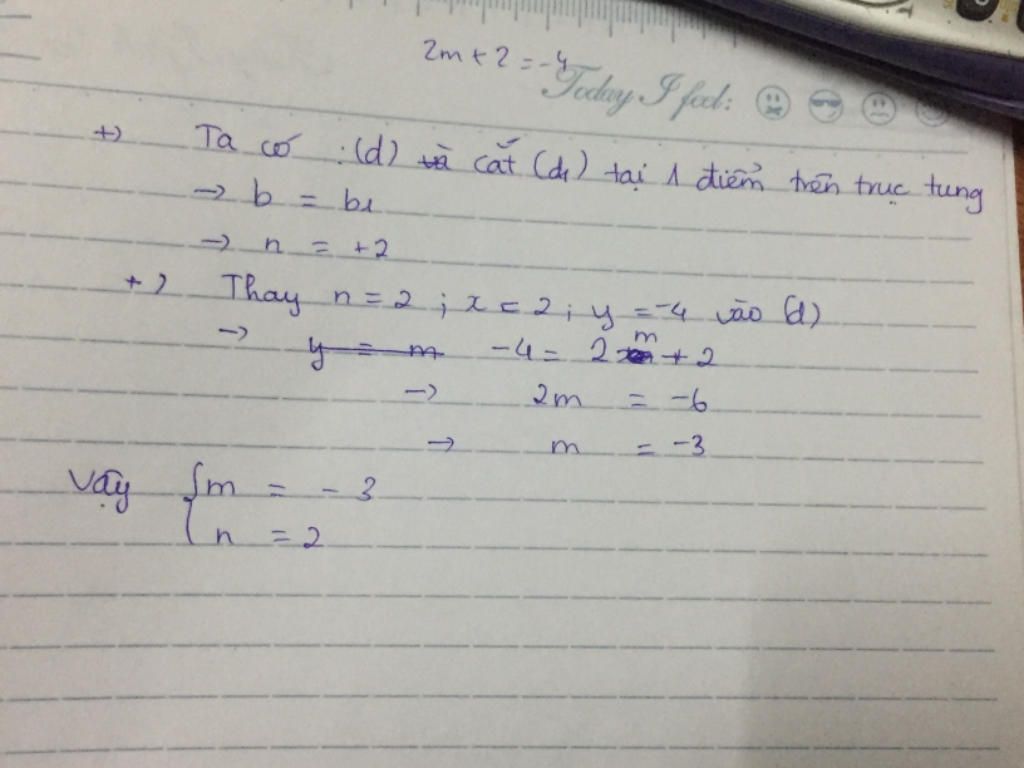 2m + 2 = -4
Today I feel:
+) Ta có : (d) và cắt (d₁) tại 1 điểm trên trục tung
→ b = b₁
→ n = +2
+) Thay n = 2 ; x = 2 ; y = -4 vào (d)
→ y = m -4 = 2m + 2
→ 2m = -6
→ m = -3
Vậy { m = - 3
n = 2